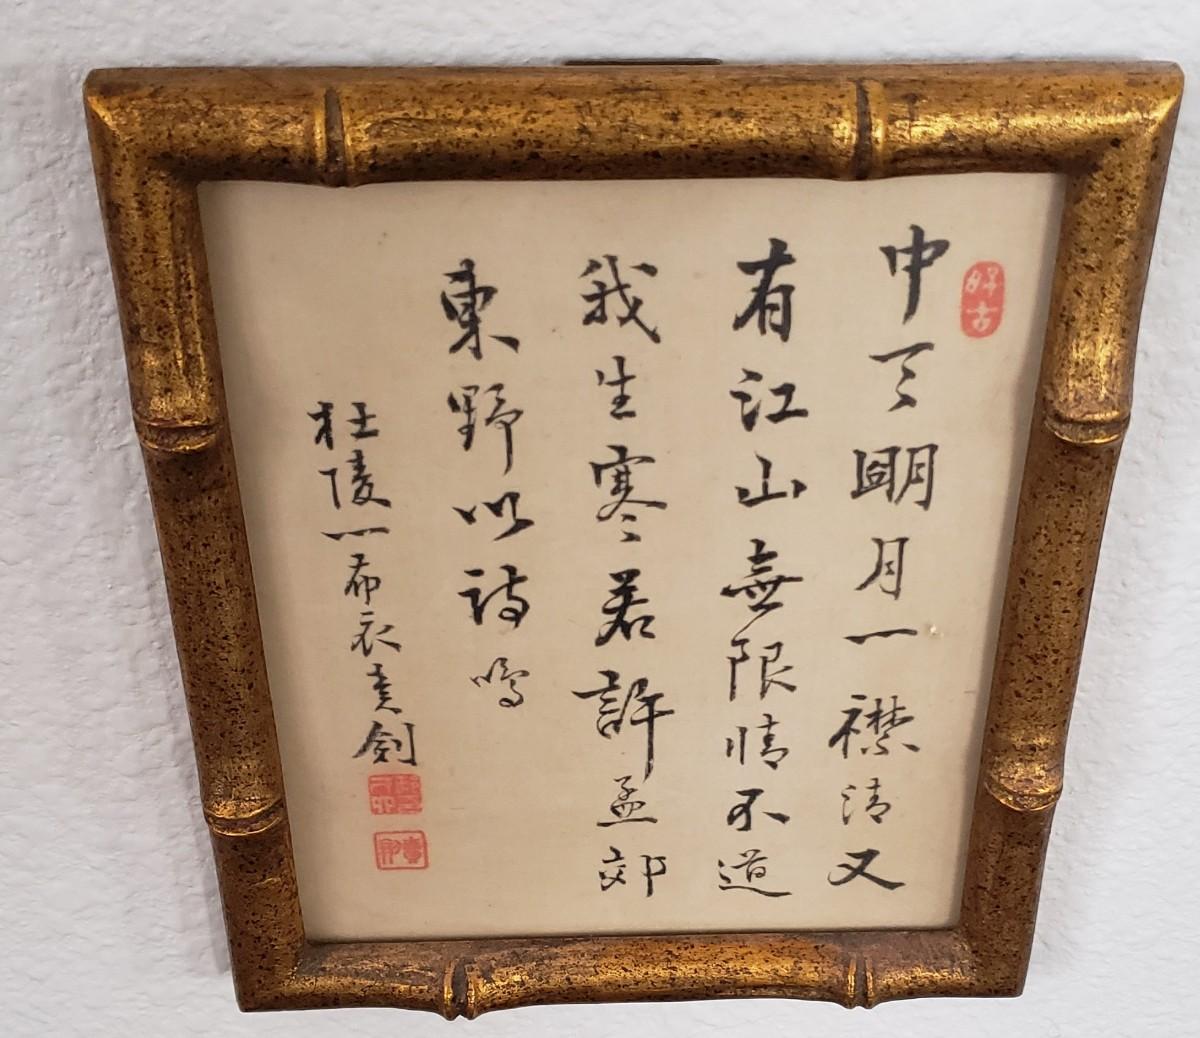 好古
中天朙月一襟清又
有江山無限情不道
我生寒若許孟郊
東野以詩鳴
杜陵一布衣